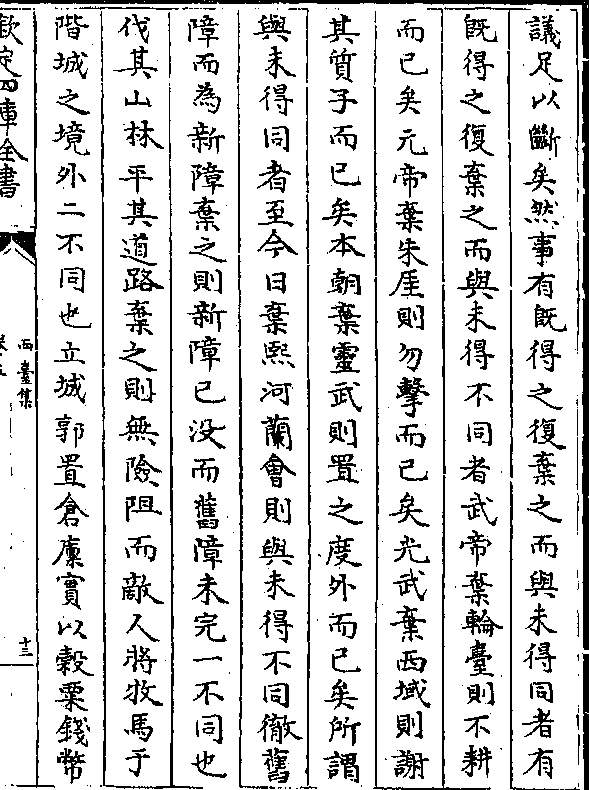 議足以斷矣然事有既得之復棄之而與未得同者有
既得之復棄之而與未得不同者武帝棄輪臺則不耕
而已矣元帝棄朱厓則勿擊而已矣光武棄西域則謝
其質子而已矣本朝棄靈武則置之度外而已矣所謂
與未得同者至今日棄熙河蘭㑹則與未得不同徹舊
障而為新障棄之則新障已没而舊障未完一不同也
伐其山林平其道路棄之則無險阻而敵人將牧馬于
階城之境外二不同也立城郭置倉廩實以穀粟錢幣
欽定四庫全書
西臺集
卷五
十三